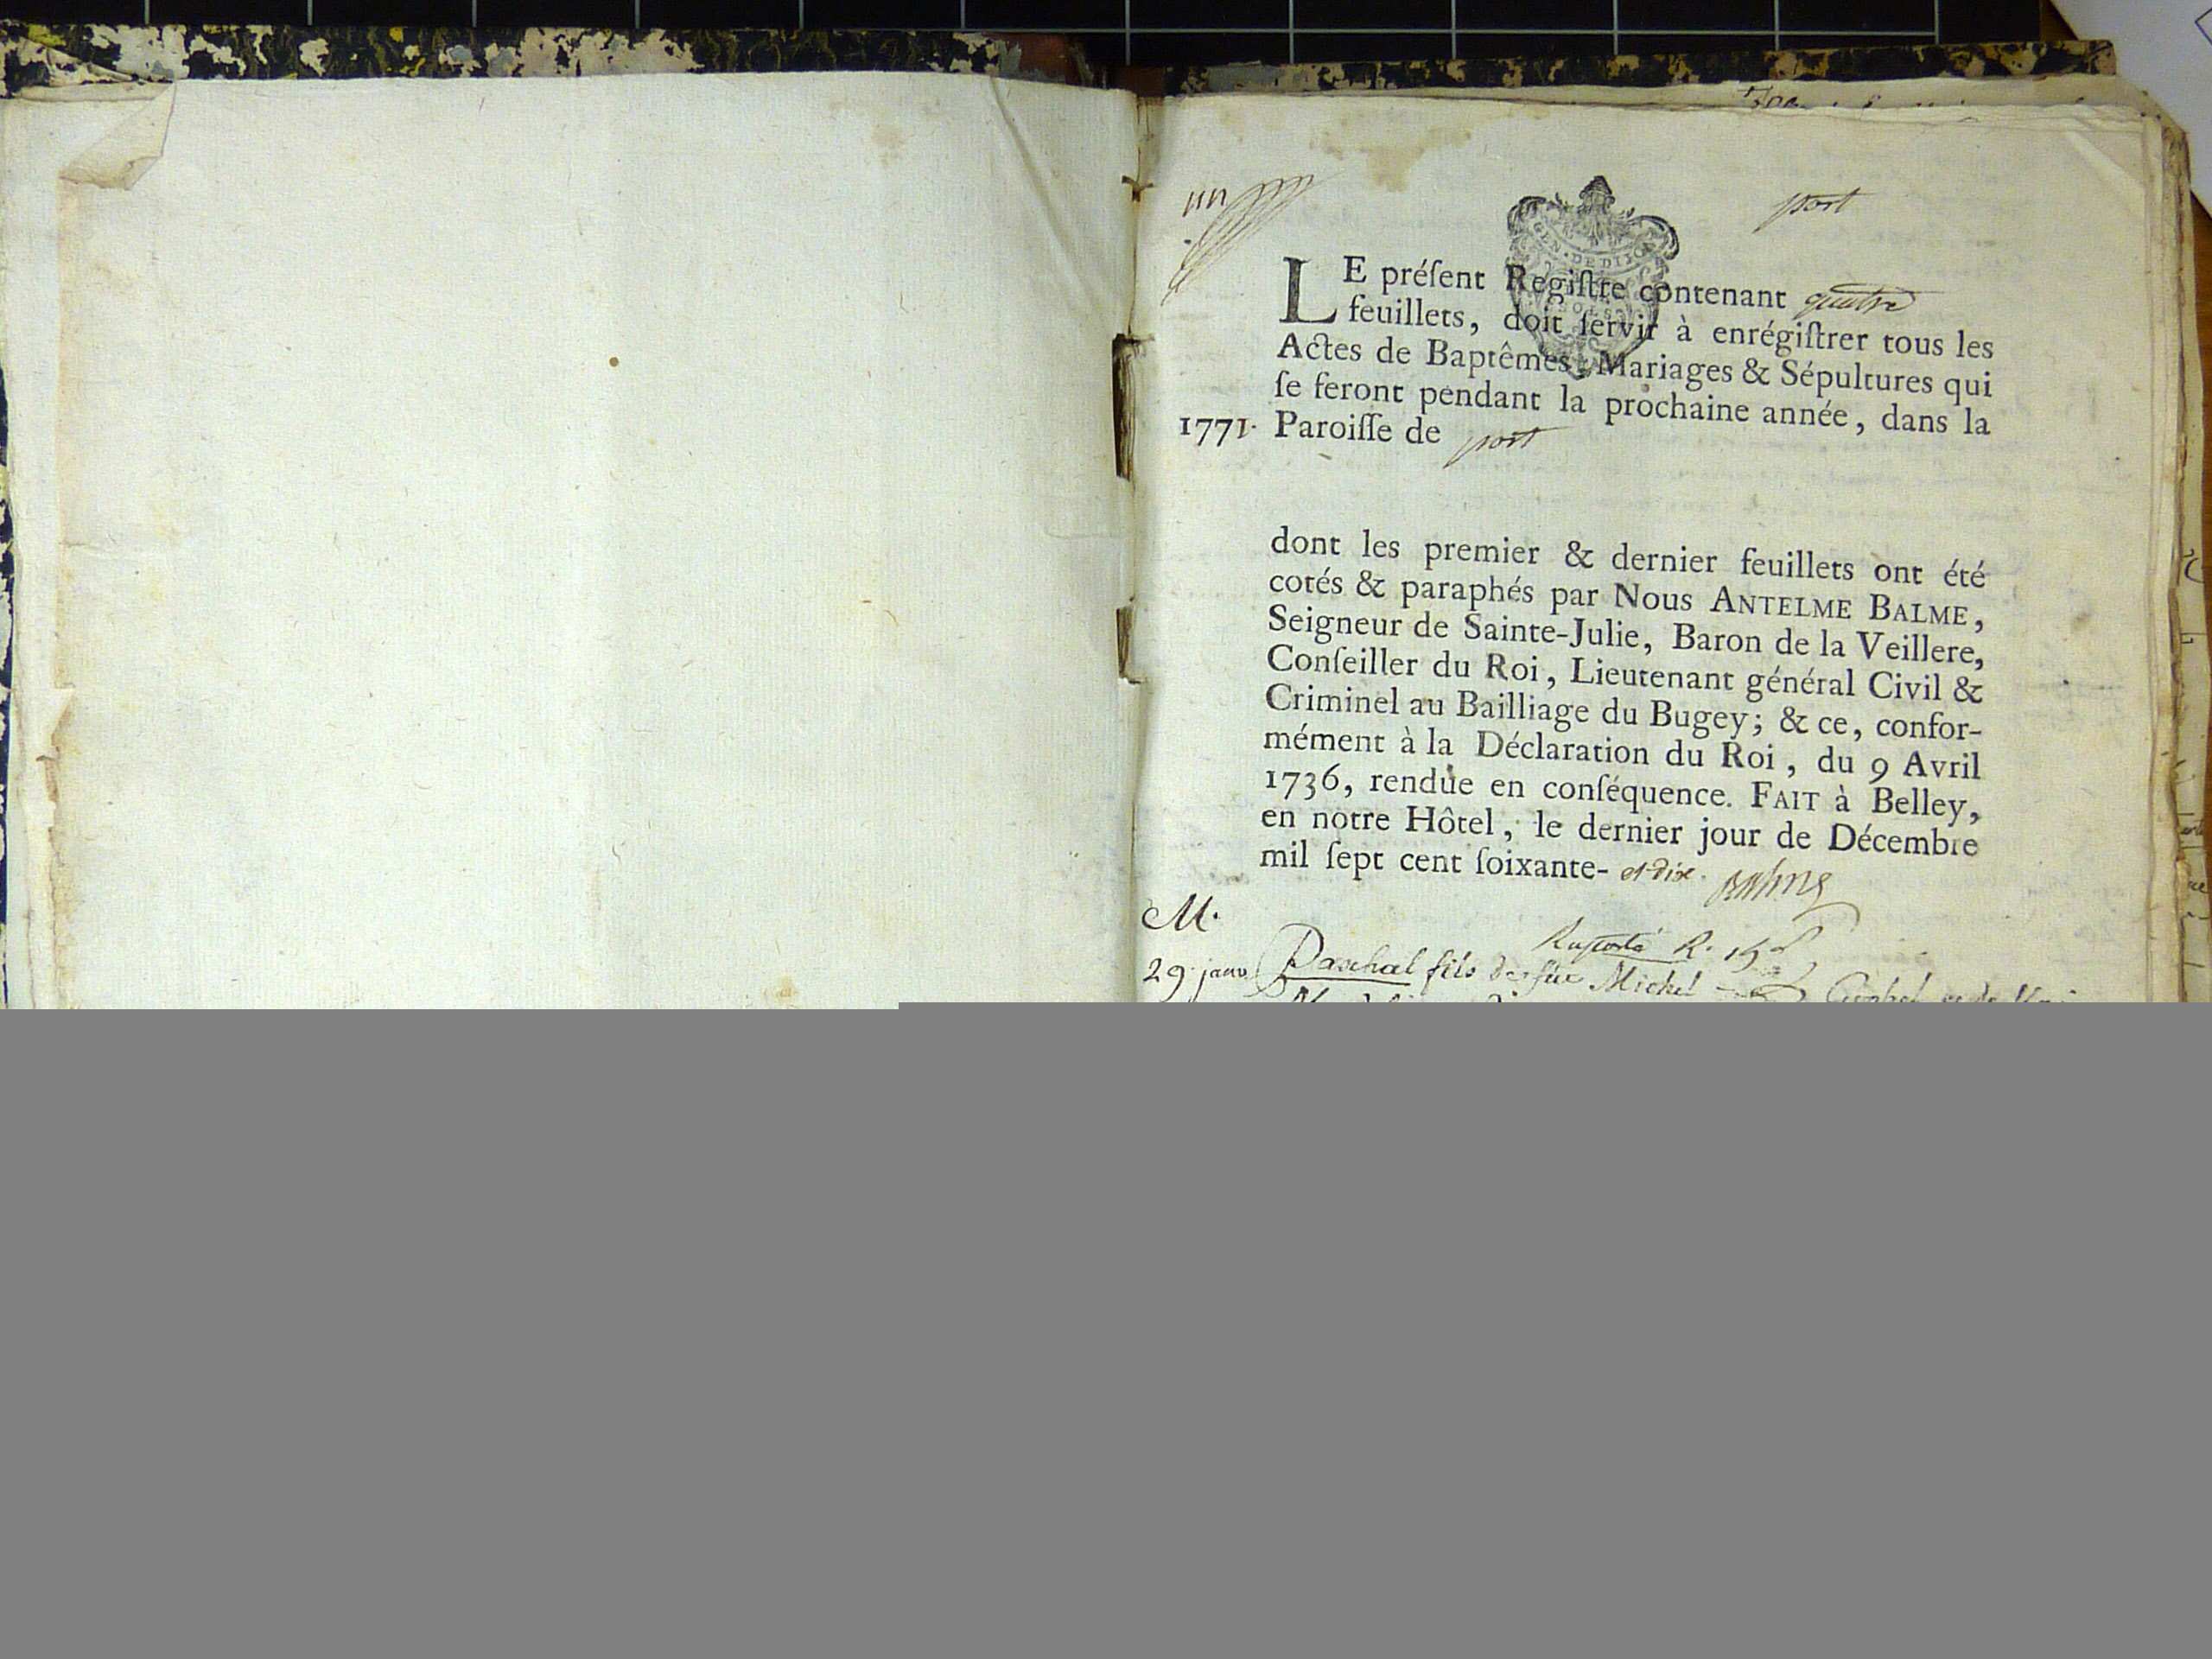 un
port
GEN. DE DIJON
LE préſent Regiſtre contenant quatre
feuillets, doit ſervir à enrégiſtrer tous les
Actes de Baptêmes, Mariages & Sépultures qui
ſe feront pendant la prochaine année, dans la
1771. Paroiſſe de port
dont les premier & dernier feuillets ont été
cotés & paraphés par Nous ANTELME BALME,
Seigneur de Sainte-Julie, Baron de la Veillere,
Conſeiller du Roi, Lieutenant général Civil &
Criminel au Bailliage du Bugey; & ce, confor-
mément à la Déclaration du Roi, du 9 Avril
1736, rendue en conſéquence. FAIT à Belley,
en notre Hôtel, le dernier jour de Décembre
mil ſept cent ſoixante- et dix. Balme
M.
29 janv Paschal fils de feu Michel